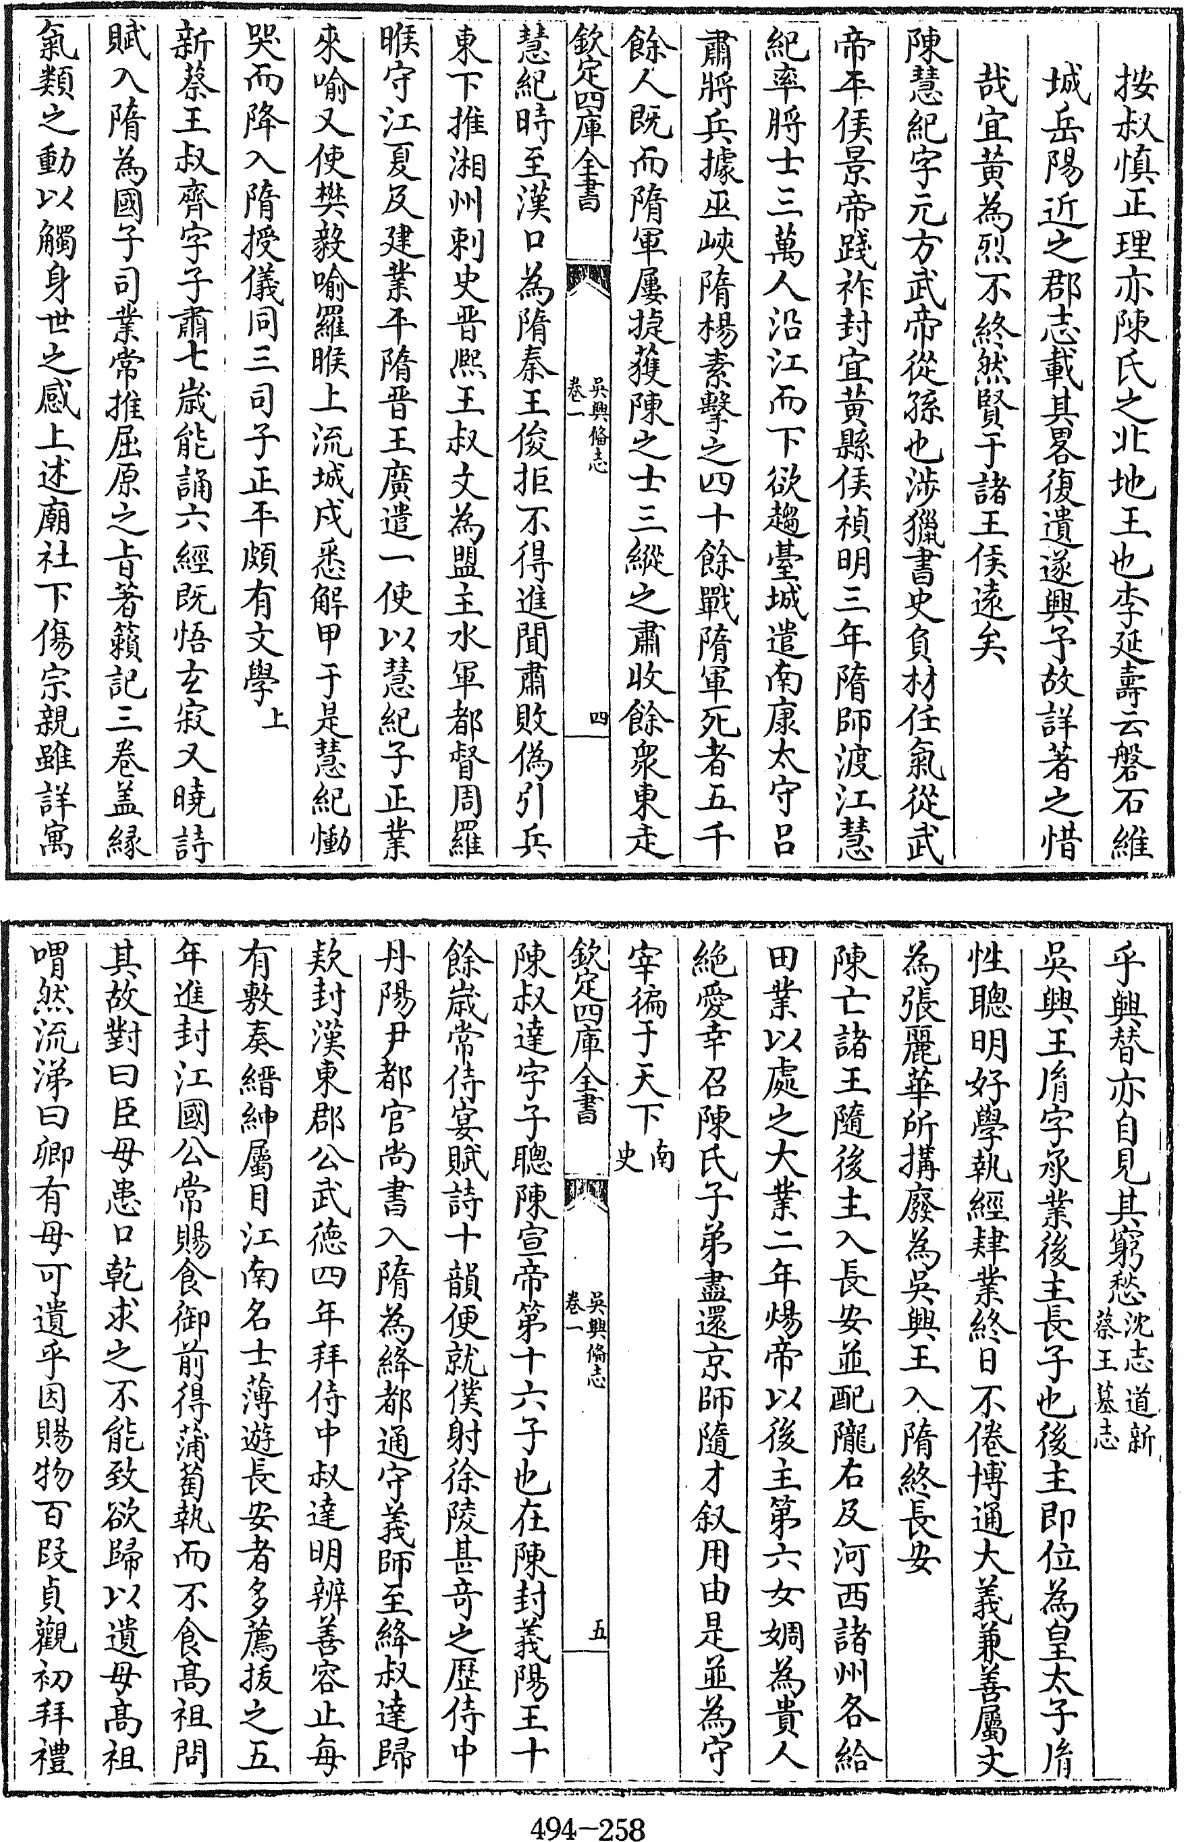 按叔慎正理亦陳氏之北地王也李延壽云磐石維
城岳陽近之郡志載其畧復遺遂興予故詳著之惜
哉宜黄為烈不終然賢于諸王侯遠矣
陳慧紀字元方武帝從孫也涉獵書史負材任氣從武
帝平侯景帝踐祚封宜黄縣侯禎明三年隋師渡江慧
紀率將士三萬人沿江而下欲趨臺城遣南康太守吕
肅將兵據巫峽隋楊素擊之四十餘戰隋軍死者五千
餘人既而隋軍屢捷獲陳之士三縱之肅收餘衆東走
欽定四庫全書
吳興備志
卷一
四
慧紀時至漢口為隋秦王俊拒不得進聞肅敗偽引兵
東下推湘州刺史晉熈王叔文為盟主水軍都督周羅
睺守江夏及建業平隋晉王廣遣一使以慧紀子正業
來喻又使樊毅喻羅睺上流城戍悉解甲于是慧紀慟
哭而降入隋授儀同三司子正平頗有文學上
新蔡王叔齊字子肅七歳能誦六經既悟玄寂又曉詩
賦入隋為國子司業常推屈原之旨著籟記三卷盖緣
氣類之動以觸身世之感上述廟社下傷宗親雖詳寓
乎興替亦自見其窮愁沈志道新
蔡王墓志
吳興王胤字承業後主長子也後主即位為皇太子胤
性聰明好學執經肄業終日不倦博通大義兼善屬文
為張麗華所搆廢為吳興王入隋終長安
陳亡諸王隨後主入長安並配隴右及河西諸州各給
田業以處之大業二年煬帝以後主第六女婤為貴人
絶愛幸召陳氏子弟盡還京師隨才叙用由是並為守
宰徧于天下南
史
欽定四庫全書
吳興備志
卷一
五
陳叔達字子聰陳宣帝第十六子也在陳封義陽王十
餘歳常侍宴賦詩十韻便就僕射徐陵甚奇之歴侍中
丹陽尹都官尚書入隋為絳都通守義師至絳叔達歸
欵封漢東郡公武德四年拜侍中叔達明辨善容止每
有敷奏縉紳屬目江南名士薄遊長安者多薦拔之五
年進封江國公常賜食御前得蒲萄執而不食髙祖問
其故對曰臣母患口乾求之不能致欲歸以遺母髙祖
喟然流涕曰卿有母可遺乎因賜物百段貞觀初拜禮
494-258